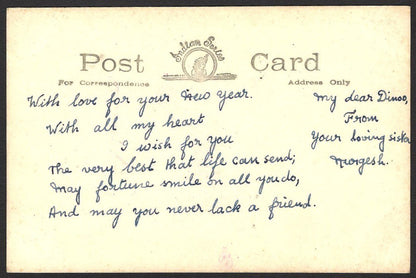 Post Card
Indian Series
For Correspondence
Address Only
With love for your New Year.
With all my heart
I wish for you
The very best that life can send;
May fortune smile on all you do,
And may you never lack a friend.
My dear Dinoo,
From
Your loving sister